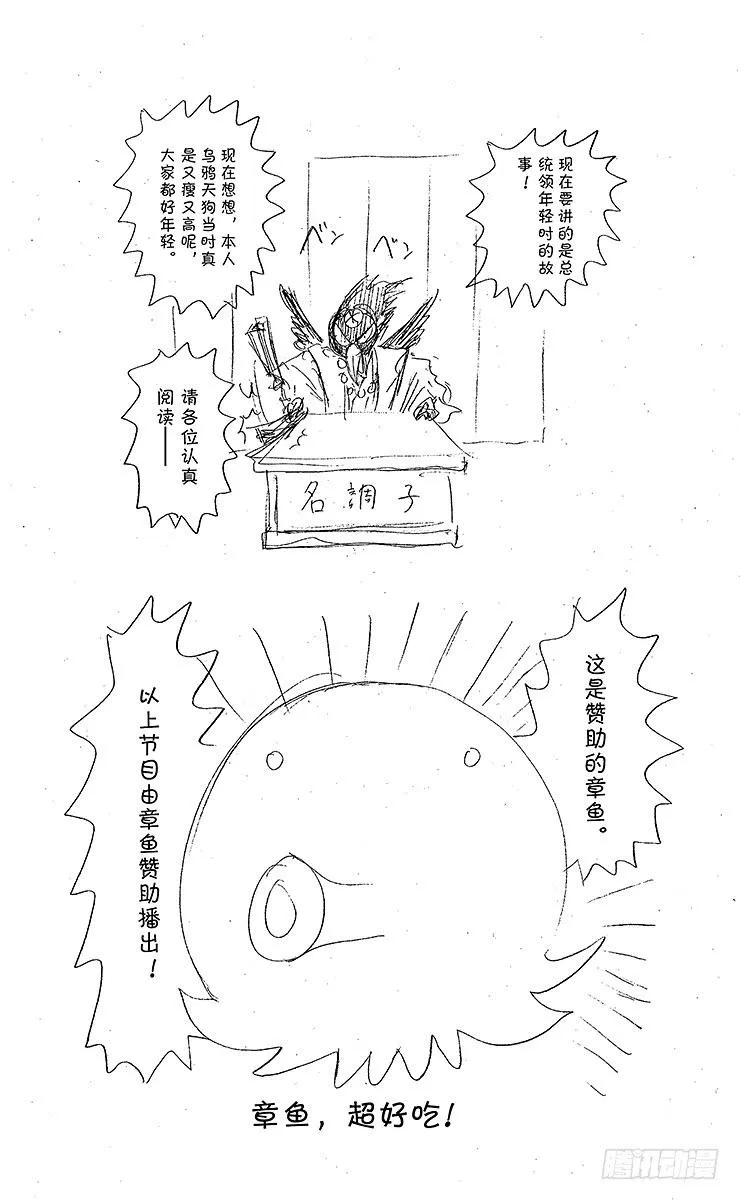 现在要讲的是总
统领年轻时的故
事！
现在想想，本人
乌鸦天狗当时真
是又瘦又高呢，
大家都好年轻。
ベン
ベン
请各位认真
阅读——
名調子
这是赞助的章鱼。
以上节目由章鱼赞助播出！
章鱼，超好吃！
腾讯动漫